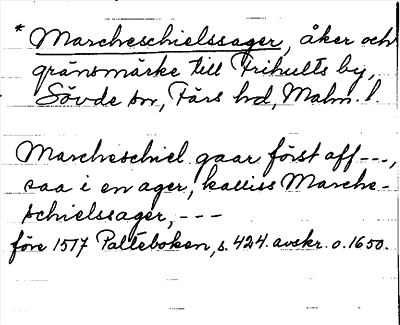 * Marcheschielssager, åker och
gränsmärke till Frihults by,
Sövde sn, Färs hd, Malm. l.
Marcheschiel gaar först aff ---,
saa i en ager, kalliss Marche-
schielssager, ---
före 1517 Palteboken, s. 424. avskr. o. 1650.